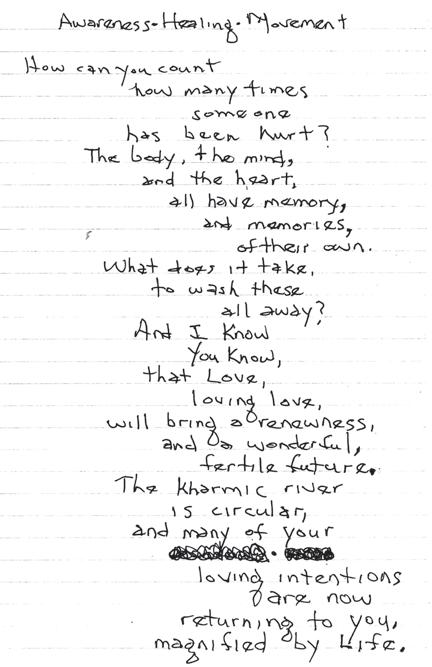 Awareness-Healing-Movement
How can you count
how many times
someone
has been hurt?
The body, the mind,
and the heart,
all have memory,
and memories,
of their own.
What does it take,
to wash these
all away?
And I Know
You Know,
that Love,
loving love,
will bring a renewness,
and a wonderful,
fertile future.
The Kharmic river
is circular,
and many of your
loving intentions
are now
returning to you,
magnified by Life.